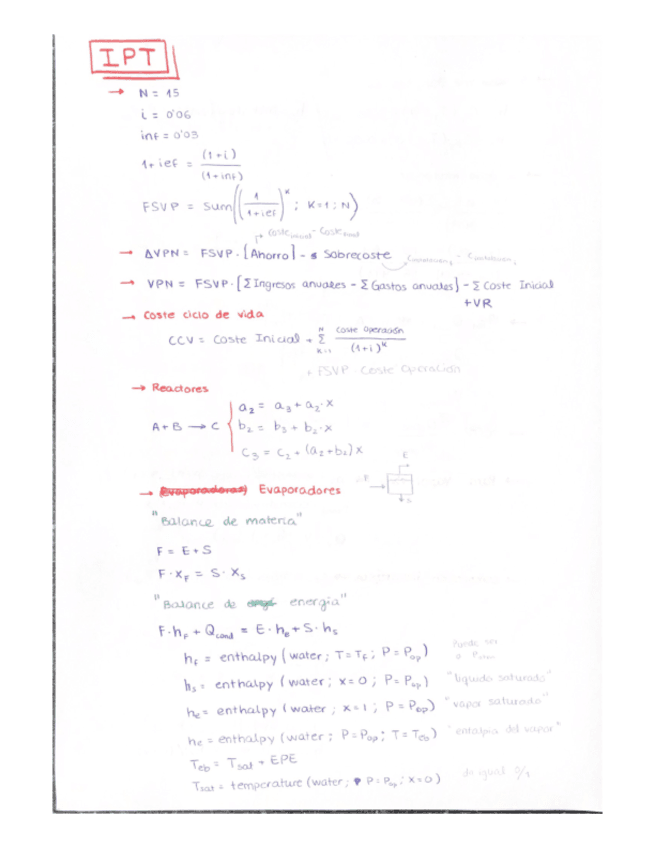 IPT
→ N = 15
i = 0'06
inf = 0'03
1+ ief = (1+i) / (1+inf)
FSVP = Sum((1 / 1+ief)^K ; K=1 ; N)
→ ΔVPN = FSVP · [Ahorro] - Sobrecoste
→ VPN = FSVP · [Σ Ingresos anuales - Σ Gastos anuales] - Σ Coste Inicial
+VR
→ Coste ciclo de vida
CCV = Coste Inicial + Σ_{K=1}^{N} Coste Operación / (1+i)^K
+ FSVP · Coste Operación
→ Reactores
a₂ = a₃ + a₂·x
A+B → C
b₂ = b₃ + b₂·x
C₃ = C₂ + (a₂+b₂)x
→ Evaporadores
E
F
S
"Balance de materia"
F = E + S
F · x_F = S · x_S
"Balance de energia"
F·h_F + Q_cond = E·h_E + S·h_S
h_F = enthalpy (water ; T=T_F ; P=P_op) Puede ser
h_S = enthalpy (water ; x=0 ; P=P_op) "liquido saturado"
h_e = enthalpy (water ; x=1 ; P=P_op) "vapor saturado"
h_e = enthalpy (water ; P=P_op ; T=T_eb) "entalpia del vapor"
T_eb = T_sat + EPE
T_sat = temperature (water ; P=P_op ; x=0) da igual 0/1